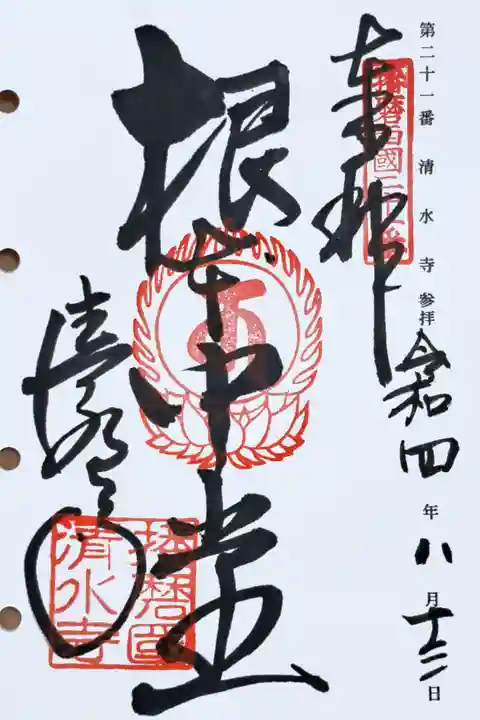 第二十一番 清水寺 参拝 令和四年八月十三日
奉拝
播磨西國三十三番
根本中堂
清水寺
播磨國清水寺